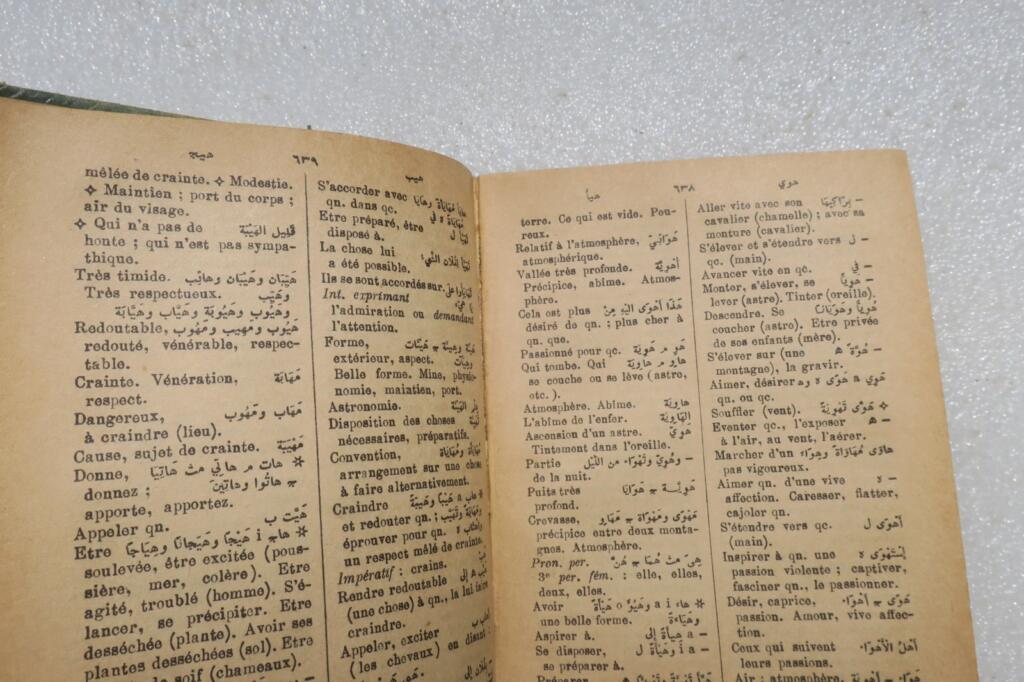 هوي
٦٣٨
هيأ
Aller vite avec son
cavalier (chamelle) ; avec sa
monture (cavalier).
S'élever et s'étendre vers – ل
qc. (main).
Avancer vite en qc. – في
Monter, s'élever, se
lever (astre). Tinter (oreille).
Descendre. Se
coucher (astro). Etre privée
de ses enfants (mère).
S'élever sur (une – هُوَّة ه
montagne), la gravir.
Aimer, désirer هَوِي a هَوًى ه
qn. ou qc.
Souffler (vent). ✧ هَوَّى تَهْوِيَة
Eventer qc., l'exposer – ه
à l'air, au vent, l'aérer.
Marcher d'un هاوَى مُهَاوَاة وهِوَاء
pas vigoureux.
Aimer qn. d'une vive – ه
affection. Caresser, flatter,
cajoler qn.
S'étendre vers qc. أَهْوَى ل
(main).
Inspirer à qn. une إِسْتَهْوَى ه
passion violente ; captiver,
fasciner qn., le passionner.
Désir, caprice, هَوًى ج أَهْوَاء
passion. Amour, vive affec-
tion.
Ceux qui suivent أَهْلُ الأَهْوَاء
leurs passions.
Air ; atmosphère. هَوَاء ج أَهْوِيَة
terre. Ce qui est vide. Peu-
reux.
Relatif à l'atmosphère, هَوَائِيّ
atmosphérique.
Vallée très profonde. أُهْوِيَّة
Précipice, abîme. Atmos-
phère.
Cela est plus هٰذَا أَهْوَى إِلَيْهِ مِنْ
désiré de qn. ; plus cher à
qn. que.
Passionné pour qc. هَوٍ م هَوِيَة
Qui tombe. Qui هَاوٍ م هَاوِيَة
se couche ou se lève (astre,
etc. ).
Atmosphère. Abîme. هَاوِيَة
L'abîme de l'enfer. الهَاوِيَة
Ascension d'un astre. هُوِيّ
Tintement dans l'oreille.
Partie – وهُوِيّ وتَهْوَاء مِن اللَّيْل
de la nuit.
Puits très هَوِيَّة ج هَوَايَا
profond.
Crevasse, مَهْوًى ومَهْوَاة ج مَهَاوٍ
précipice entre deux monta-
gnes. Atmosphère.
Pron. per. هِيَ مث هُمَا ج هُنَّ
3e per. fém. : elle, elles,
deux, elles.
Avoir * هَاء i a وهَيُؤَ o هَيْأَة
une belle forme. وهَيَاءَة
Aspirer à. – a هِيأَة إِلى
Se disposer, – i a وهَيْأَة ل
se préparer à.
هيب
٦٣٩
هيج
S'accorder avec هايأ مُهَايَأَة وهايا
qn. dans qc. ه في
Etre préparé, être تَهَيَّأَ ل
disposé à.
La chose lui تَهَيَّأَ لِفُلَان الشَّيْء
a été possible.
Ils se sont accordés sur. تَهَايَأُوا على
Int. exprimant
l'admiration ou demandant
l'attention.
Forme, هَيْئَة وهِيئَة ج هَيْئَات
extérieur, aspect. وهِيئَات
Belle forme. Mine, physio-
nomie, maintien, port.
Astronomie. عِلْم الهَيْئَة
Disposition des choses
nécessaires, préparatifs.
Convention, مُهَايَأَة ومُهَايَاة
arrangement sur une chose
à faire alternativement.
Craindre * هاب a هَيْبًا وهَيْبَة
et redouter qn. ; ومَهَابَة وتَهَيَّب
éprouver pour qn.
un respect mêlé de crainte.
Impératif : crains. هَبْ
Rendre redoutable هَيَّب ه إِلى
(une chose) à qn., la lui faire
craindre.
Appeler, exciter
(les chevaux) en disant :
mêlée de crainte. ✧ Modestie.
✧ Maintien ; port du corps ;
air du visage.
✧ Qui n'a pas de قَلِيل الهَيْبَة
honte ; qui n'est pas sympa-
thique.
Très timide. هَيْبَان وهَيَّبَان وهائِب
Très respectueux. وهَيِّب
وهَيُوب وهَيُوبَة وهَيَّاب وهَيَّابَة
Redoutable, هَيُوب ومَهِيب ومَهُوب
redouté, vénérable, respec-
table.
Crainte. Vénération, مَهَابَة
respect.
Dangereux, مَهَاب ومَهُوب
à craindre (lieu).
Cause, sujet de crainte. مَهْيَبَة
Donne, * هَات م هاتي مث هَاتِيَا
donnez ; ج هاتُوا وهاتِينَ
apporte, apportez.
Appeler qn. هَيَّت ب
Etre * هاج i هَيْجًا وهَيَجَانًا وهِيَاجًا
soulevée, être excitée (pous-
sière, mer, colère). Etre
agité, troublé (homme). S'é-
lancer, se précipiter. Etre
desséchée (plante). Avoir ses
plantes desséchées (sol). Etre
soif (chameaux).